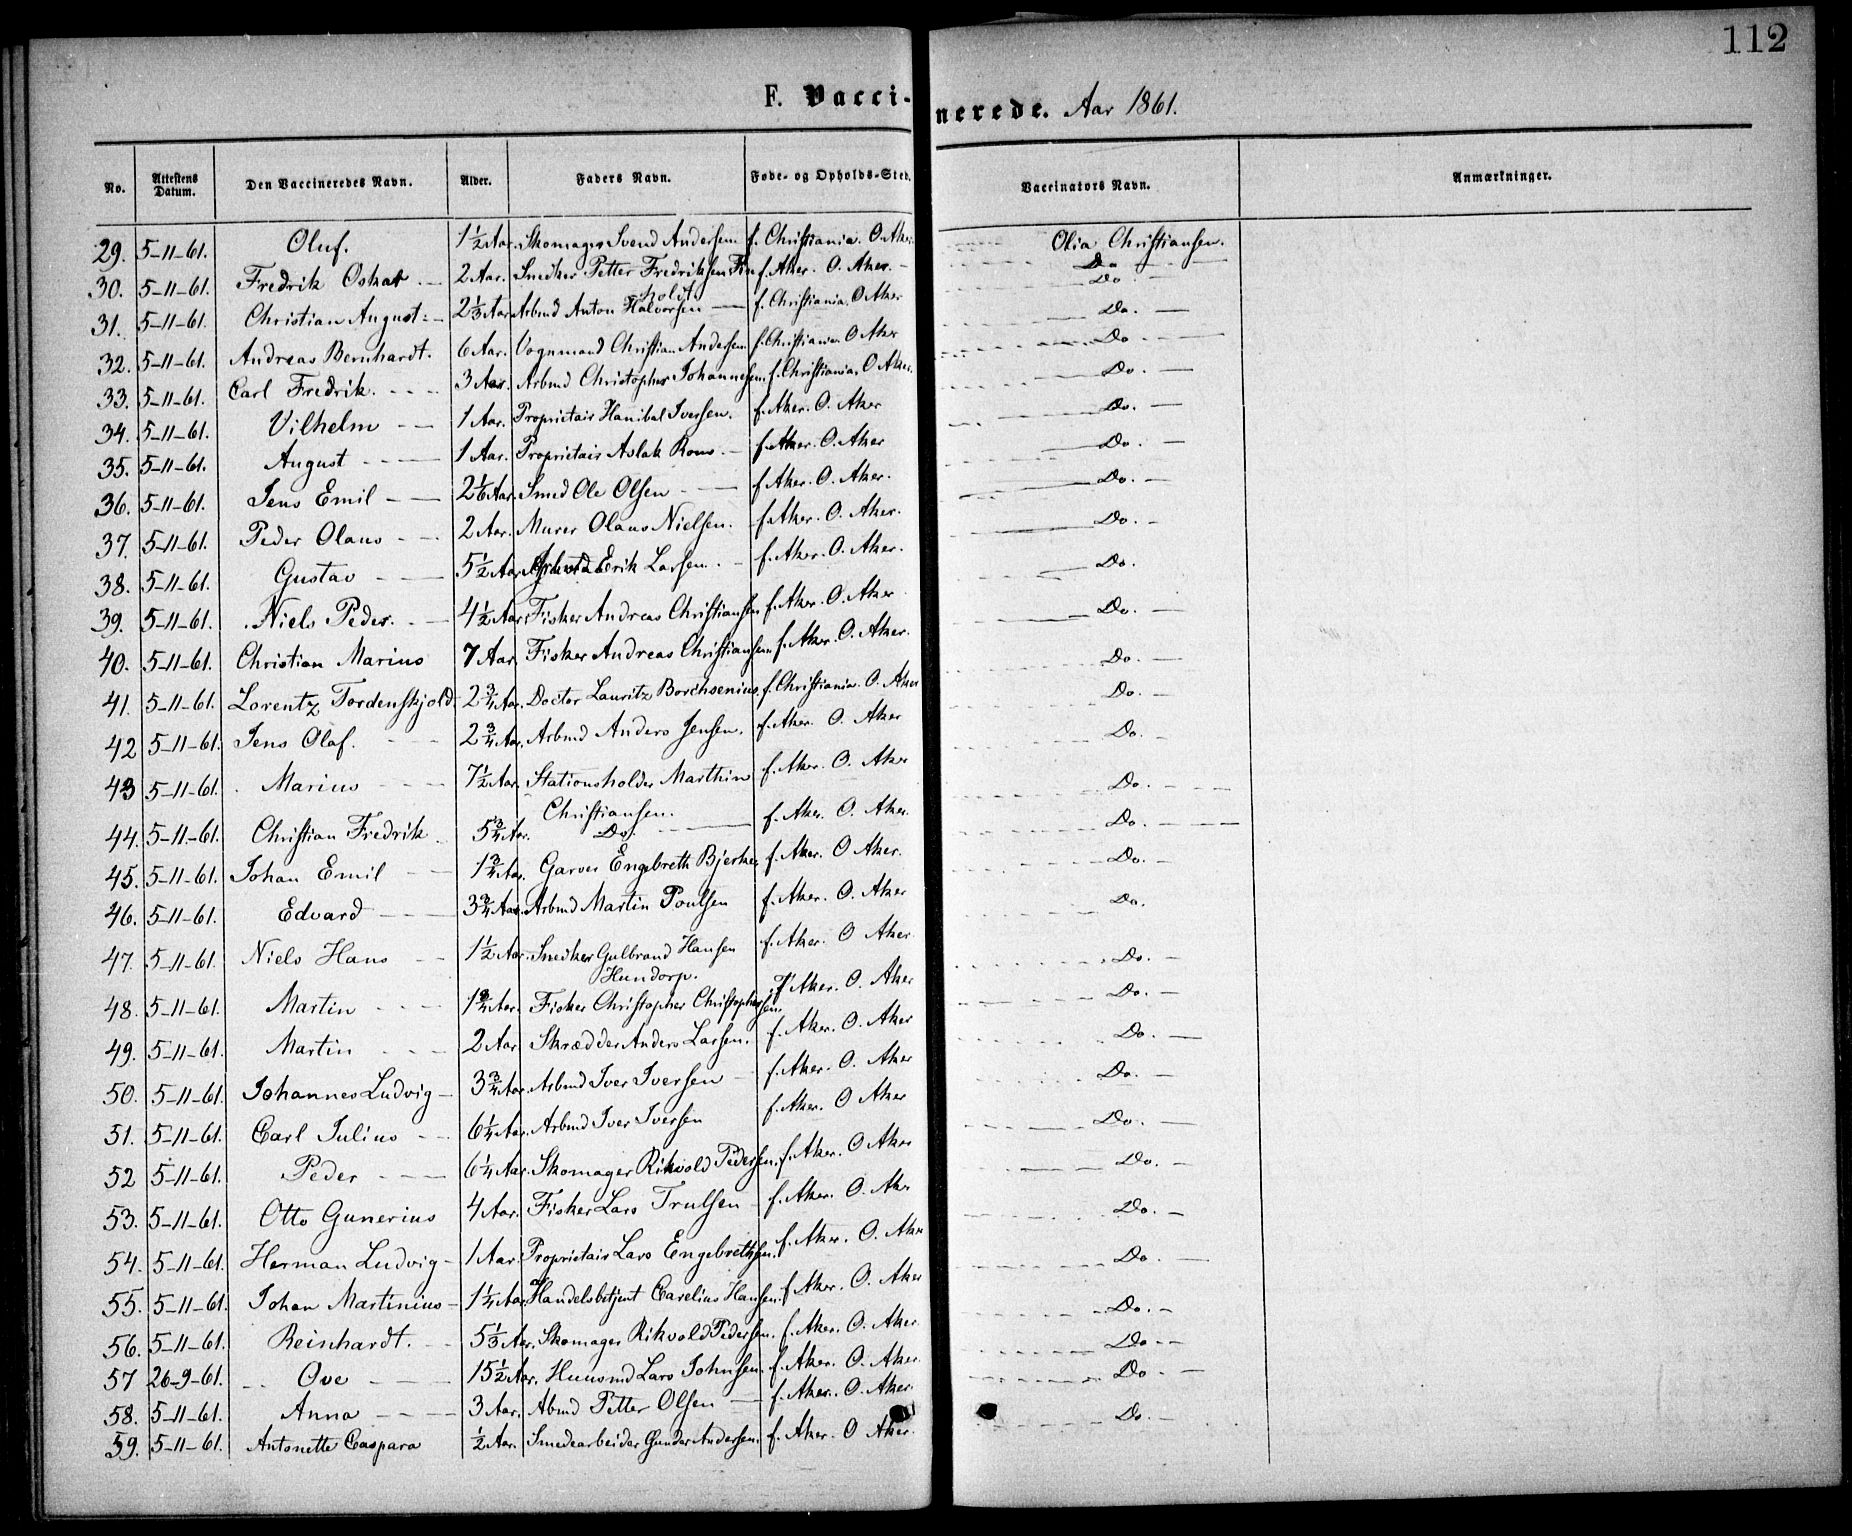 112
F. Vaccinerede. Aar 1861.
No. Attestens Datum. Den Vaccineredes Navn. Alder. Faders Navn. Føde- og Opholds-Sted. Vaccinators Navn. Anmærkninger.
29. 5-11-61. Oluf. 1 1/2 Aar. Skomager Svend Andersen f. Christiania. O. Aker Olia Christiansen.
30. 5-11-61. Fredrik Oskar 2 Aar. Snedker Petter Fredriksen f. Aker. O. Aker. Do Do
holdt
31. 5-11-61. Christian August 2 1/3 Aar Arbmd Anton Halvorsen f. Christiania. O Aker Do.
32. 5-11-61. Andreas Bernhardt. 6 Aar. Vognmand Christian Andersen f. Christiania O Aker Do
33. 5-11-61. Carl Fredrik. 3 Aar. Arbmd Christopher Johannesen f. Christiania. O Aker. Do.
34. 5-11-61. Vilhelm 1 Aar. Proprietair Hanibal Iversen. f. Aker. O. Aker Do.
35. 5-11-61. August 1 Aar. Proprietair Aslak Rom f. Aker. O. Aker Do.
36. 5-11-61. Jens Emil 2 1/6 Aar. Smed Ole Olsen f. Aker. O. Aker. Do.
37. 5-11-61. Peder Olaus 2 Aar. Murer Olaus Nielsen. f. Aker. O. Aker. Do.
38. 5-11-61. Gustav 5 1/2 Aar. Erik Larsen. f. Aker. O. Aker. Do.
39. 5-11-61. Niels Peder. 4 1/2 Aar. Fisker Andreas Christiansen f. Aker. O. Aker Do.
40. 5-11-61. Christian Marius 7 Aar. Fisker Andreas Christiansen f. Aker. O. Aker. Do.
41. 5-11-61. Lorentz Tordenskjold. 2 3/4 Aar. Doctor Lauritz Borchsenius. f. Christiania. O. Aker Do.
42 5-11-61. Jens Olaf. 2 3/4 Aar. Arbmd Anders Jensen. f. Aker. O. Aker Do.
43 5-11-61. Marius 7 1/2 Aar. Stationsholder Marthin f. Aker. O. Aker Do.
Christiansen.
44. 5-11-61. Christian Fredrik 5 3/4 Aar. Do. f. Aker. O. Aker. Do.
45. 5-11-61. Johan Emil 1 3/4 Aar. Garver Engebreth Bjerke f. Aker. O Aker. Do.
46. 5-11-61. Edvard 3 3/4 Aar. Arbmd Martin Poulsen f. Aker. O. Aker Do.
47. 5-11-61. Niels Hans 1 1/2 Aar. Snedker Gulbrand Hansen f. Aker. O Aker Do.
Hundorp.
48. 5-11-61. Martin 1 3/4 Aar. Fisker Christopher Christophersen. f Aker. O. Aker Do.
49. 5-11-61. Martin 2 Aar Skrædder Anders Larsen. f. Aker. O. Aker Do.
50. 5-11-61. Johannes Ludvig 3 3/4 Aar. Arbmd Iver Iversen f. Aker. O. Aker Do.
51. 5-11-61. Carl Julius 6 1/4 Aar. Arbmd Iver Iversen f. Aker. O Aker Do.
52 5-11-61. Peder 6 1/4 Aar. Skomager Rikvold Pedersen. f. Aker. O Aker Do.
53. 5-11-61. Otto Gunerius 4 Aar. Fisker Lars Trulsen f. Aker. O. Aker Do.
54. 5-11-61. Herman Ludvig 1 Aar. Proprietair Lars Engebrethsen. f. Aker. O. Aker Do.
55. 5-11-61. Johan Martinius 1 1/4 Aar. Handelsbetjent Carelius Hansen. f. Aker. O. Aker Do.
56. 5-11-61. Reinhardt. 5 1/3 Aar. Skomager Rikvold Pedersen. f. Aker. O. Aker. Do
57 26-9-61. Ove 15 1/2 Aar. Huusmd Lars Johnsen. f. Aker. O. Aker. Do
58. 5-11-61. Anna 3 Aar. Abmd Petter Olsen f. Aker. O. Aker. Do.
59. 5-11-61. Antonette Caspara 1/2 Aar. Smedearbeider Gunder Andersen. f. Aker. O Aker.